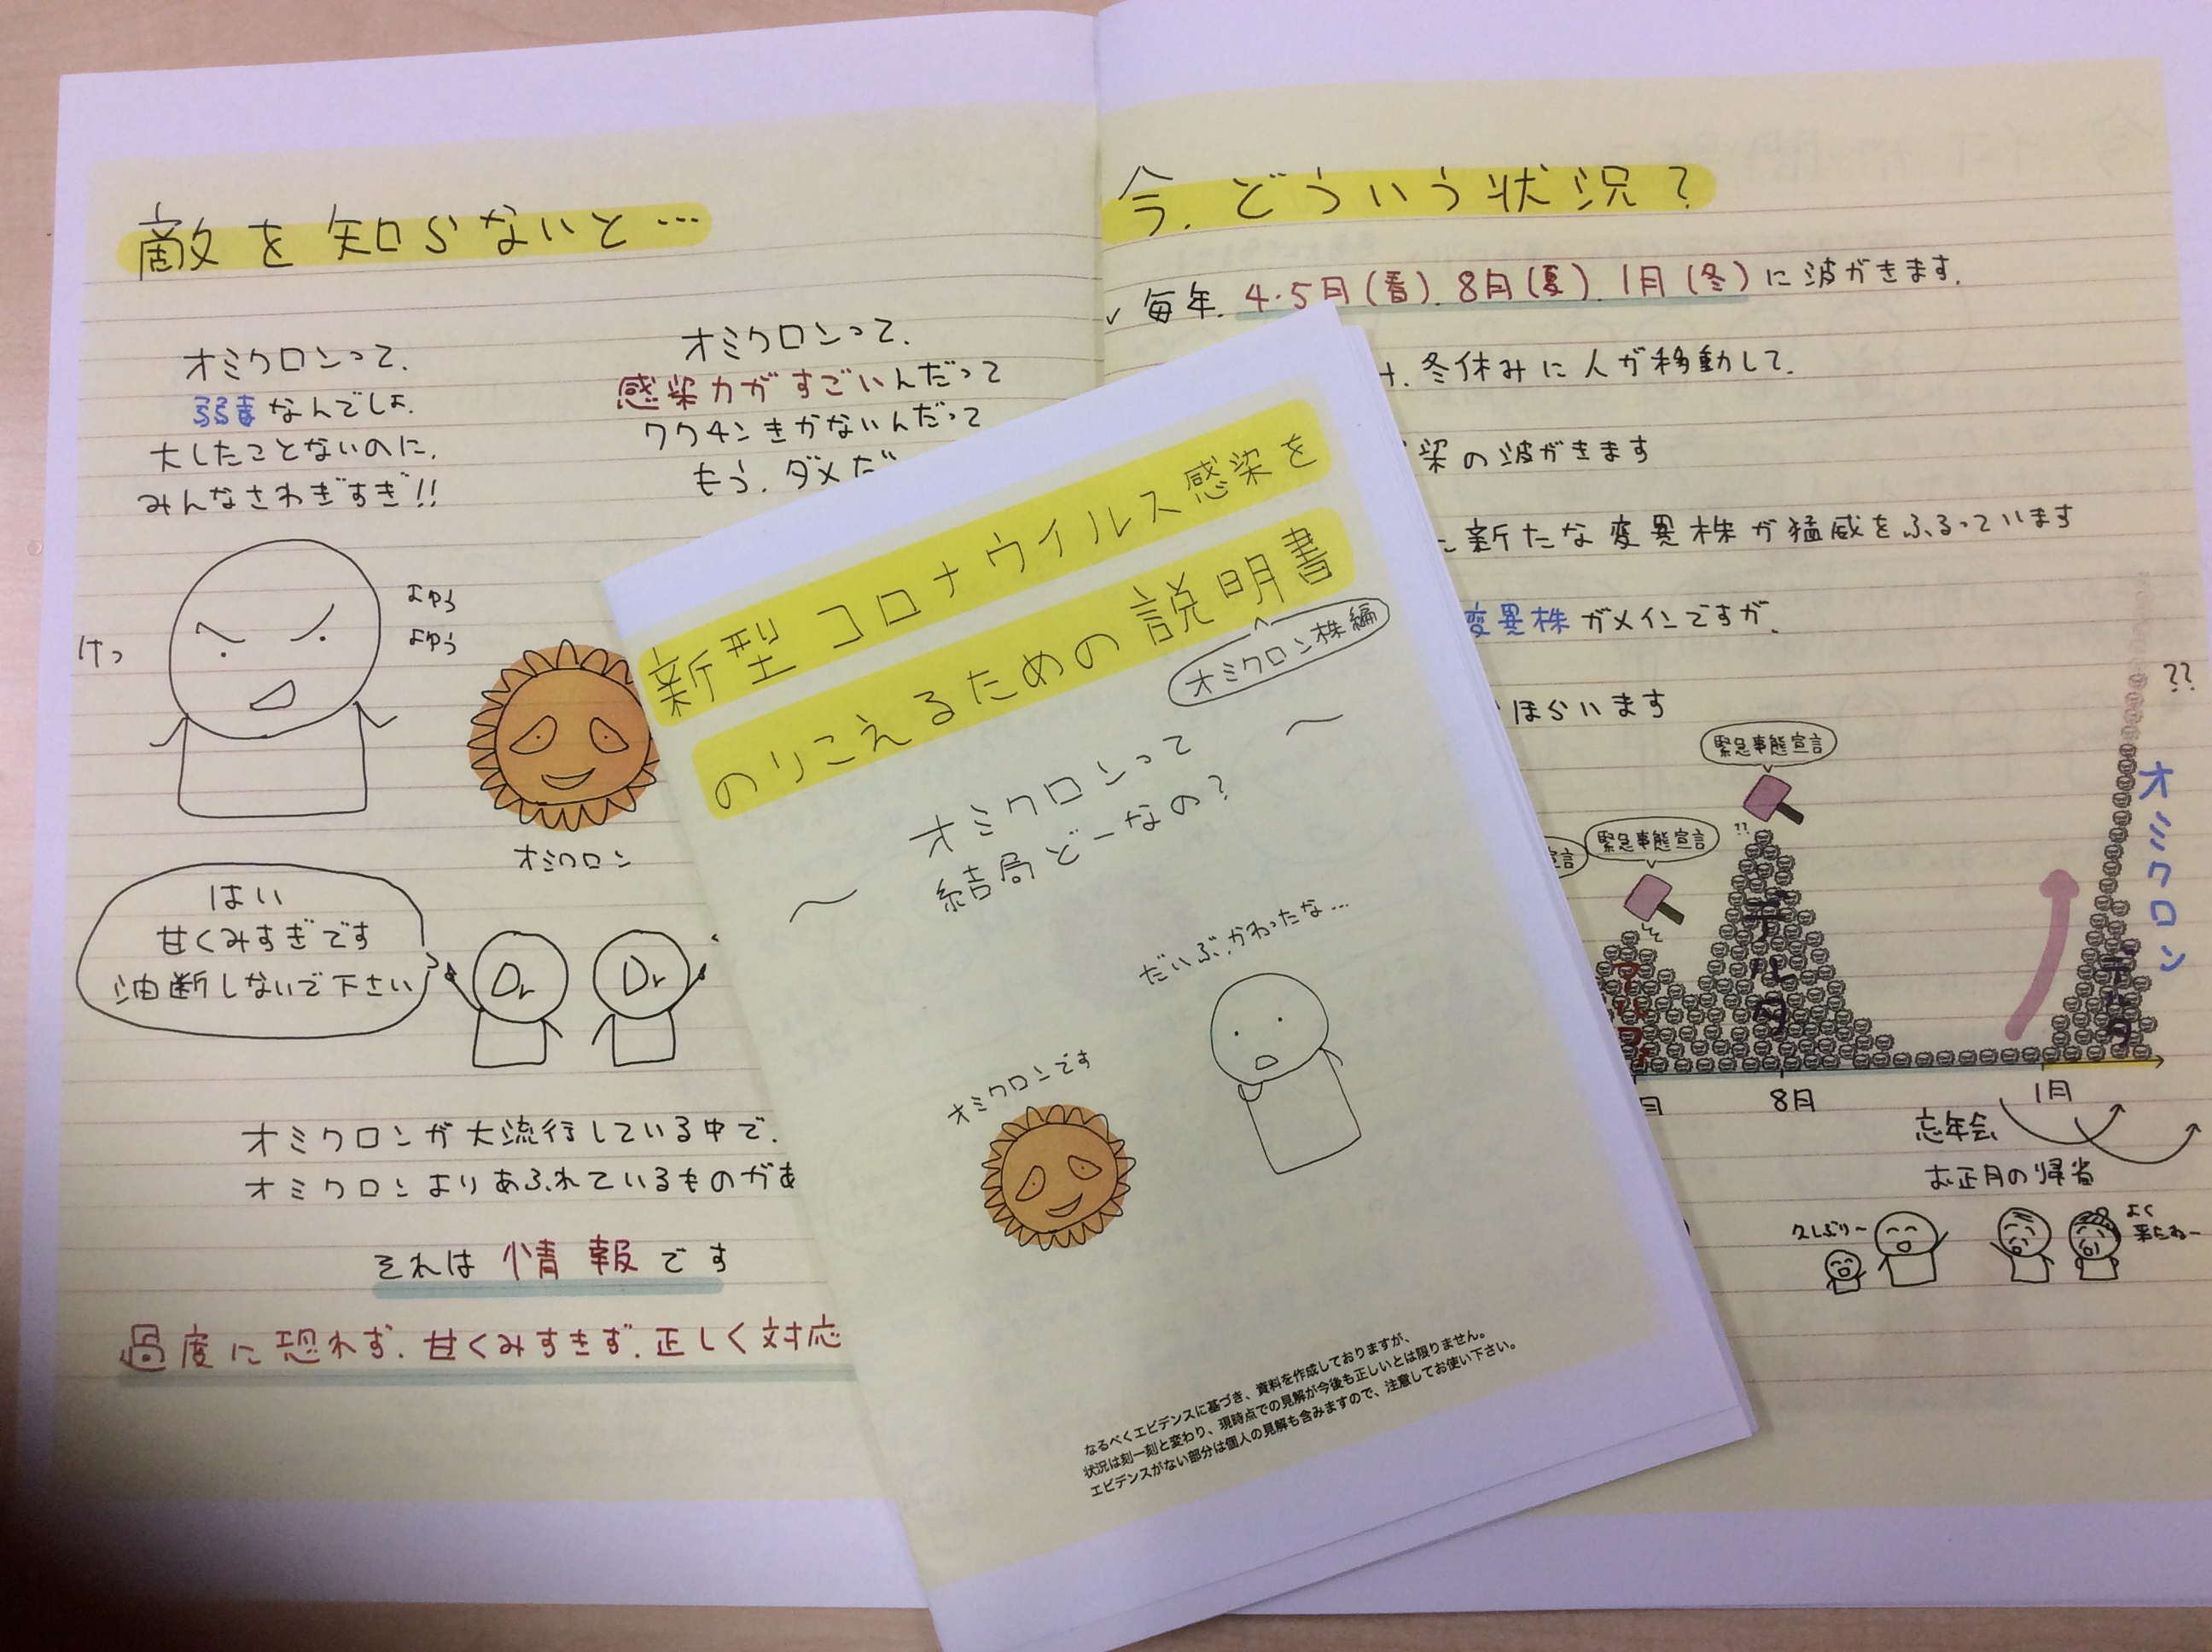 敵を知らないと…
オミクロンって、
弱毒なんでしょ、
大したことないのに、
みんなさわぎすぎ!!
オミクロンって、
感染力がすごいんだって
ワクチンきかないんだって
もう、ダメだ
けっ
よゆう
よゆう
オミクロン
はい
甘くみすぎです
油断しないで下さい
Dr
Dr
オミクロンが大流行している中で、
オミクロンよりあふれているものがあ
それは情報です
過度に恐れず、甘くみすぎず、正しく対応
新型コロナウイルス感染を
のりこえるための説明書
オミクロン株編
〜オミクロンって
結局どーなの?〜
だいぶ、かわったな…
オミクロンです
なるべくエビデンスに基づき、資料を作成しておりますが、
状況は刻一刻と変わり、現時点での見解が今後も正しいとは限りません。
エビデンスがない部分は個人の見解も含みますので、注意してお使い下さい。
今、どういう状況?
✓毎年、4・5月(春)、8月(夏)、1月(冬)に波がきます。
冬休みに人が移動して、
染の波がきます
新たな変異株が猛威をふるっています
変異株がメインですが、
ほらいます
??
緊急事態宣言
緊急事態宣言
宣言
??
オミクロン
アルファ
デルタ
デルタ
月
8月
1月
忘年会
お正月の帰省
久しぶり〜
よく
来たねー